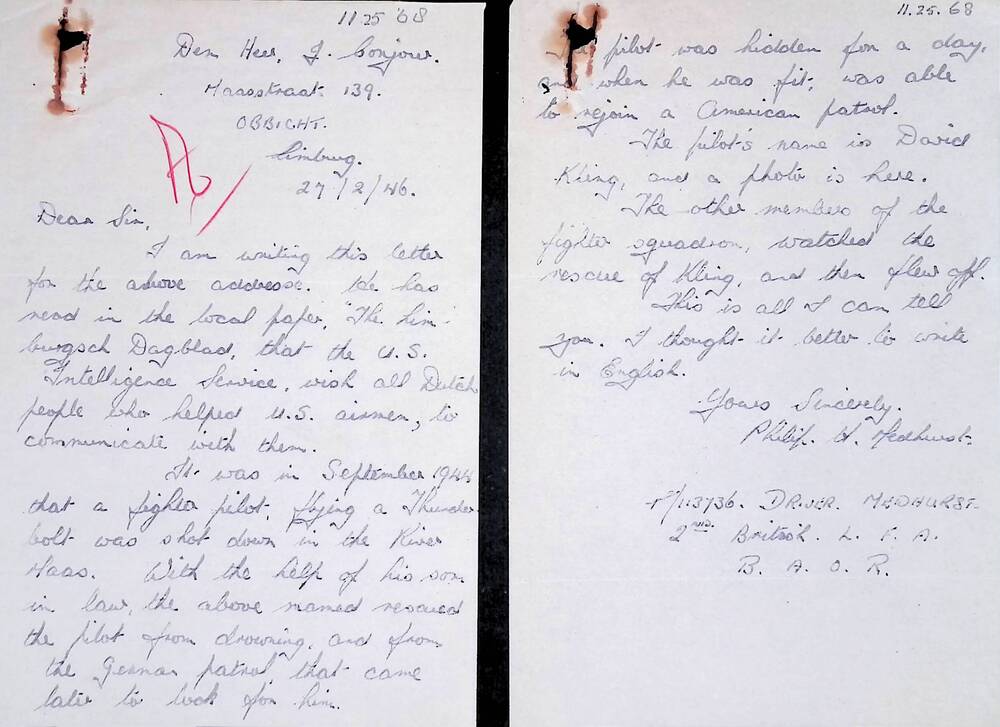 11.25 '68
Den Heer, J. Conjour.
Maasstraat 139.
OBBICHT.
Limburg.
27/2/46.
Dear Sir,
I am writing this letter
for the above addresse. He has
read in the local paper, "The Lim-
burgsch Dagblad, that the U.S.
Intelligence Service, wish all Dutch
people who helped U.S. airmen, to
communicate with them.
It was in September 1944
that a fighter pilot, flying a Thunder
bolt was shot down in the River
Maas. With the help of his son
in law, the above named rescued
the pilot from drowning, and from
the German patrol that came
later to look for him.
11.25.68
The pilot was hidden for a day,
and when he was fit, was able
to rejoin a American patrol.
The pilot's name is David
Kling, and a photo is here.
The other members of the
fighter squadron, watched the
rescue of Kling, and then flew off.
This is all I can tell
you. I thought it better to write
in English.
Yours Sincerely.
Philip. H. Medhurst.
DRIVER. MEDHURST
2ND. British. L. F. A.
B. A. O. R.